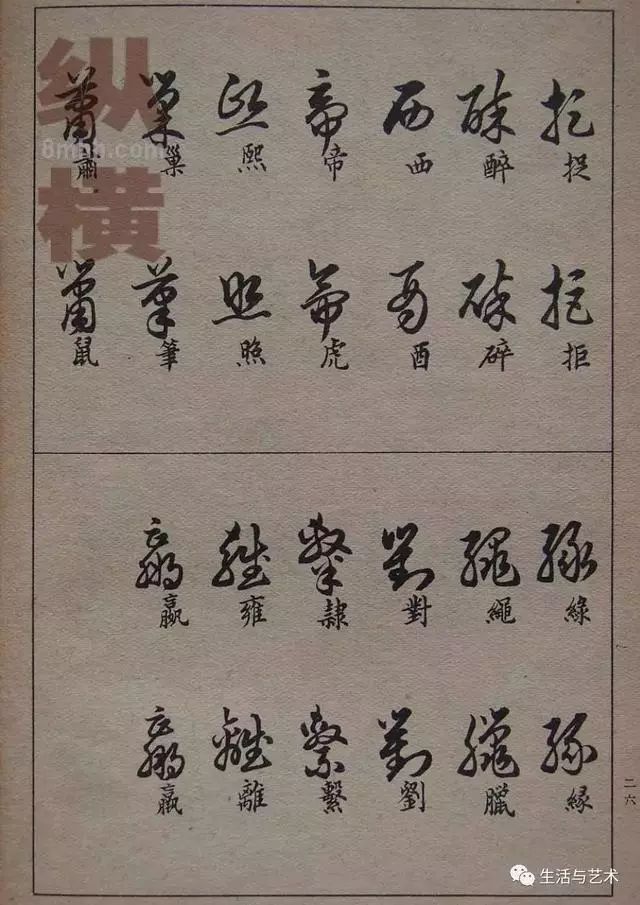 捉
拒
醉
碎
西
酉
帝
虎
熙
照
巢
筆
肅
鼠
綠
緣
繩
臘
對
劉
隸
繫
雍
離
嬴
羸
二六
纵横
8mhh.com
生活与艺术